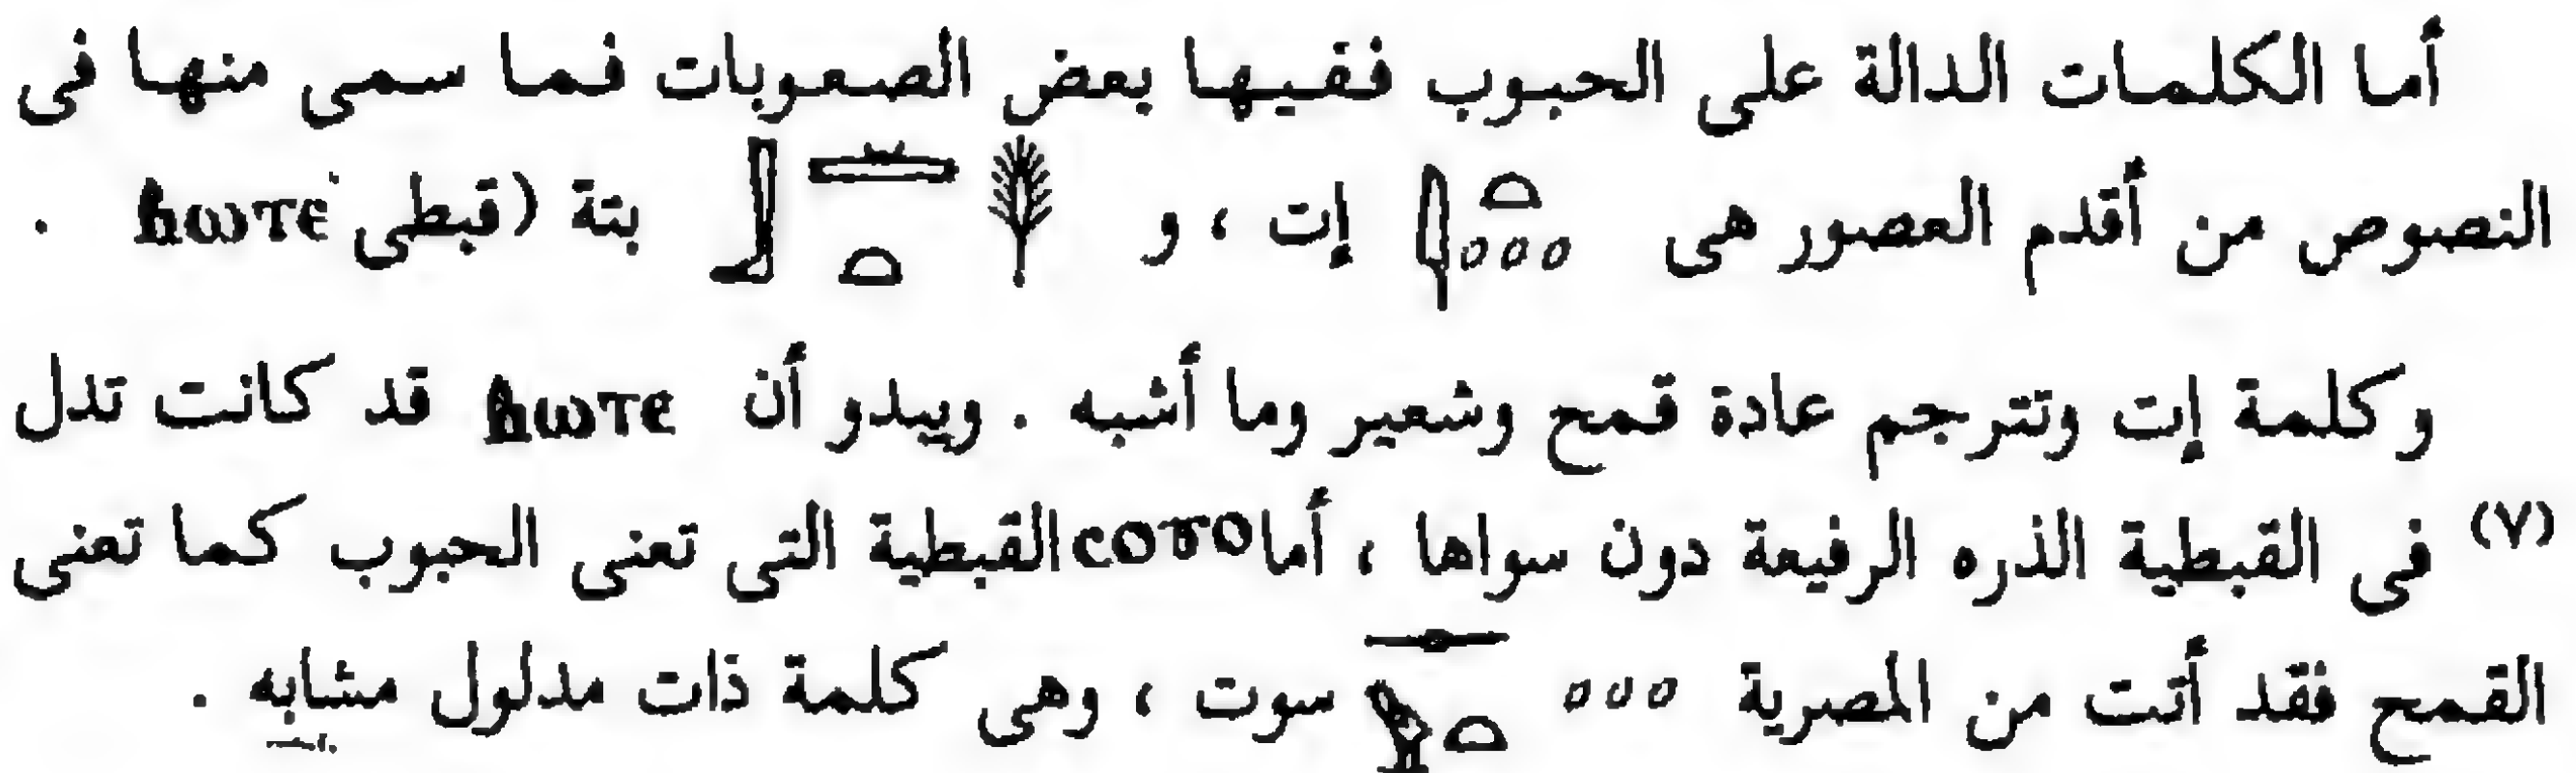 أما الكلمات الدالة على الحبوب ففيها بعض الصعوبات فما سمى منها فى
النصوص من أقدم العصور هى إت ، و بتة (قبطى ⲃⲱⲧⲉ .
وكلمة إت وتترجم عادة قمح وشعير وما أشبه . ويبدو أن ⲃⲱⲧⲉ قد كانت تدل
(٧) فى القبطية الذره الرفيعة دون سواها ، أما ⲥⲟⲩⲟ القبطية التى تعنى الحبوب كما تعنى
القمح فقد أتت من المصرية سوت ، وهى كلمة ذات مدلول مشابه .